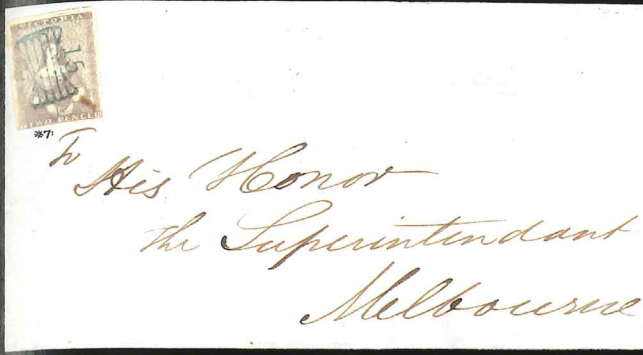 VICTORIA
15
TWO PENCE
※7:
To
His Honor
the Superintendant
Melbourne